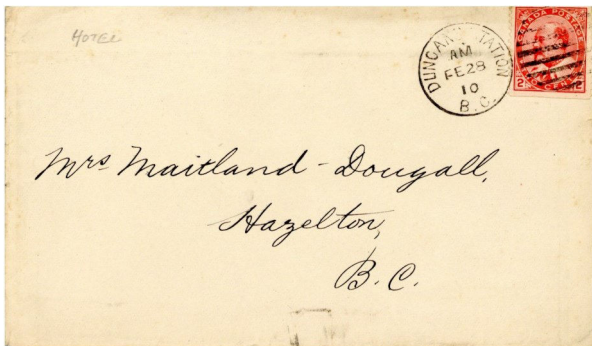 HOTEL
DUNCAN'S STATION
AM
FE 28
10
B.C.
CANADA POSTAGE
2 CENTS 2
Mrs. Maitland-Dougall,
Hazelton,
B.C.